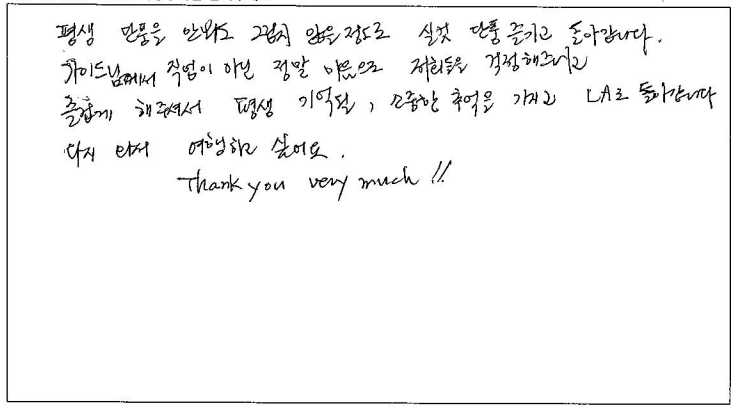 평생 단풍을 안봐도 그립지 않을 정도로 실컷 단풍 즐기고 돌아갑니다.
가이드님께서 직업이 아닌 정말 마음으로 저희들을 걱정해주시고
즐겁게 해주셔서 평생 기억될, 소중한 추억을 가지고 LA로 돌아갑니다
다시 와서 여행하고 싶어요.
Thank you very much !!